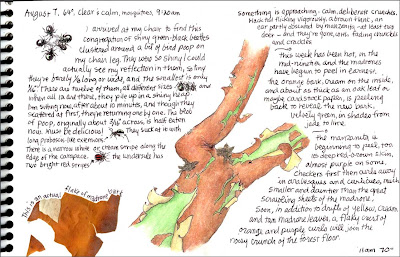 August 7, 64°, clear & calm, mosquitoes, 9:20am
I arrived at my chair to find this
congregation of shiny green-black beetles
clustered around a bit of bird poop on
my chair leg. They were so shiny I could
actually see my reflection in them, so tiny
they're barely 1/8" long or wide, and the smallest is only
1/16". There are twelve of them, all different sizes and
when all is and there, they pile up in a shiny heap
I'm sitting now, after about 10 minutes, and though they
scattered at first, they're returning one by one. The blob
of poop, originally about 3/16" across, is half eaten
now. Must be delicious! They suck it with
long proboscis-like extension.
There is a narrow white or cream stripe along the
edge of the carapace. The underside has
two bright red stripes
This is an actual flake of madrone bark
Something is approaching - calm, deliberate crunches.
black tail flicking vigorously, a brown flank, an
ear partly obscured by manzanita - at least two
deer - and they're gone, with fading crunches
and crackles
This week has been hot, in the
mid-nineties and the madrones
have begun to peel in earnest,
the orangy bark, cream on the inside,
and about as thick as an oak leaf or
maybe cardstock paper, is peeling
back to reveal the new bark,
velvety green, in shades from
jade to lime.
the manzanita is
beginning to peel, too
its deep red-brown skin,
almost purple on some,
checkers first then curls away
in arabesques and curlicues, much
smaller and daintier than the great
scrolling shells of the madrone.
Soon, in addition to drifts of yellow, cream
and tan madrone leaves, a flaky crust of
orange and purple curls will join the
noisy crunch of the forest floor.
11am 70°